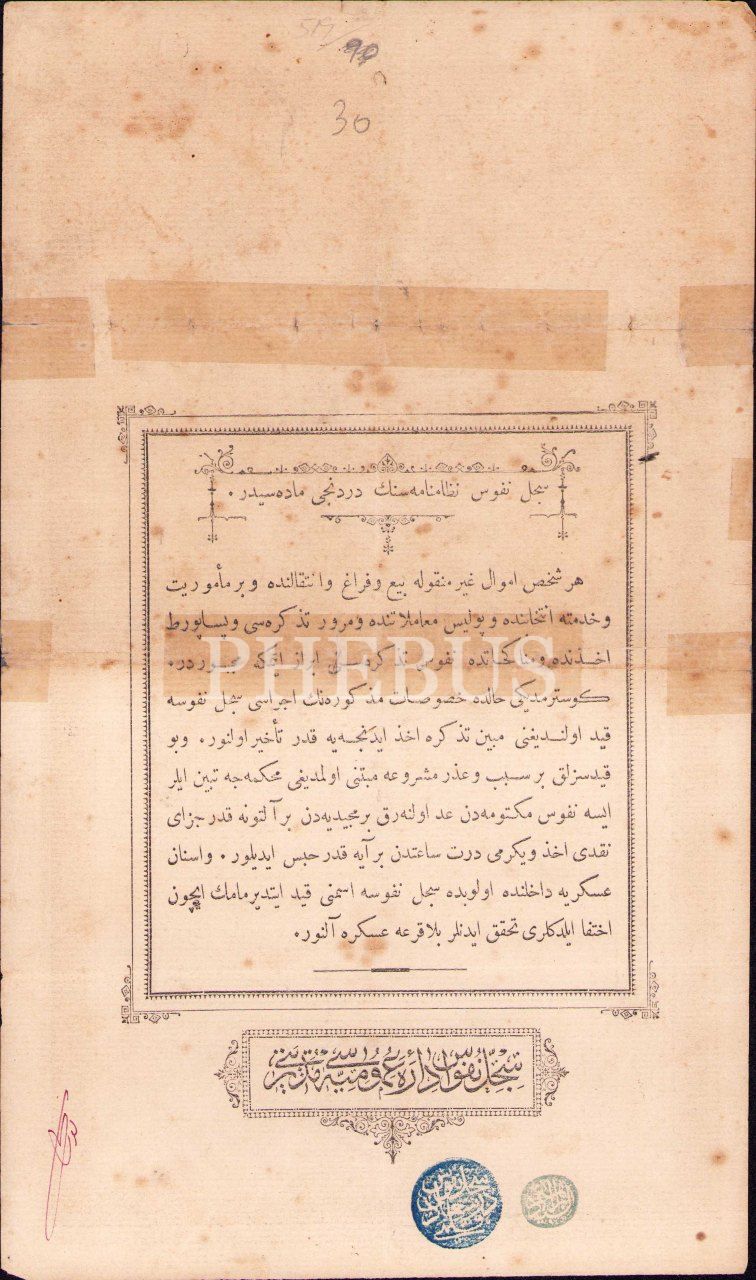 30
سجل نفوس نظامنامه‌سنك دردنجی ماده‌سیدر ٠
هر شخص اموال غیر منقوله بیع و فراغ و انتقالنده و بر مأموریت
و خدمته انتخابنده و پولیس معاملاتنده و مرور تذكره‌سی و پساپورط
اخذنده و مناكحاتده نفوس تذكره‌سنی ابراز ایتمكه مجبوردر ٠
كوسترمدیكی حالده خصوصات مذكوره‌نك اجراسی سجل نفوسه
قید اولندیغنی مبین تذكره اخذ ایدنجه‌یه قدر تأخیر اولنور ٠ و بو
قیدسزلق بر سبب و عذر مشروعه مبتنی اولمدیغی محكمه‌جه تبین ایلر
ایسه نفوس مكتومه‌دن عد اولنه‌رق بر مجیدیه‌دن بر آلتونه قدر جزای
نقدی اخذ و یكرمی درت ساعتدن بر آیه قدر حبس ایدیلور ٠ و اسنان
عسكریه داخلنده اولوبده سجل نفوسه اسمنی قید ایتدیرمامك ایچون
اختفا ایلدكلری تحقق ایدنلر بلا قرعه عسكره آلنور ٠
PHEBUS
سجل نفوس اداره عمومیه‌سی مدیریتی